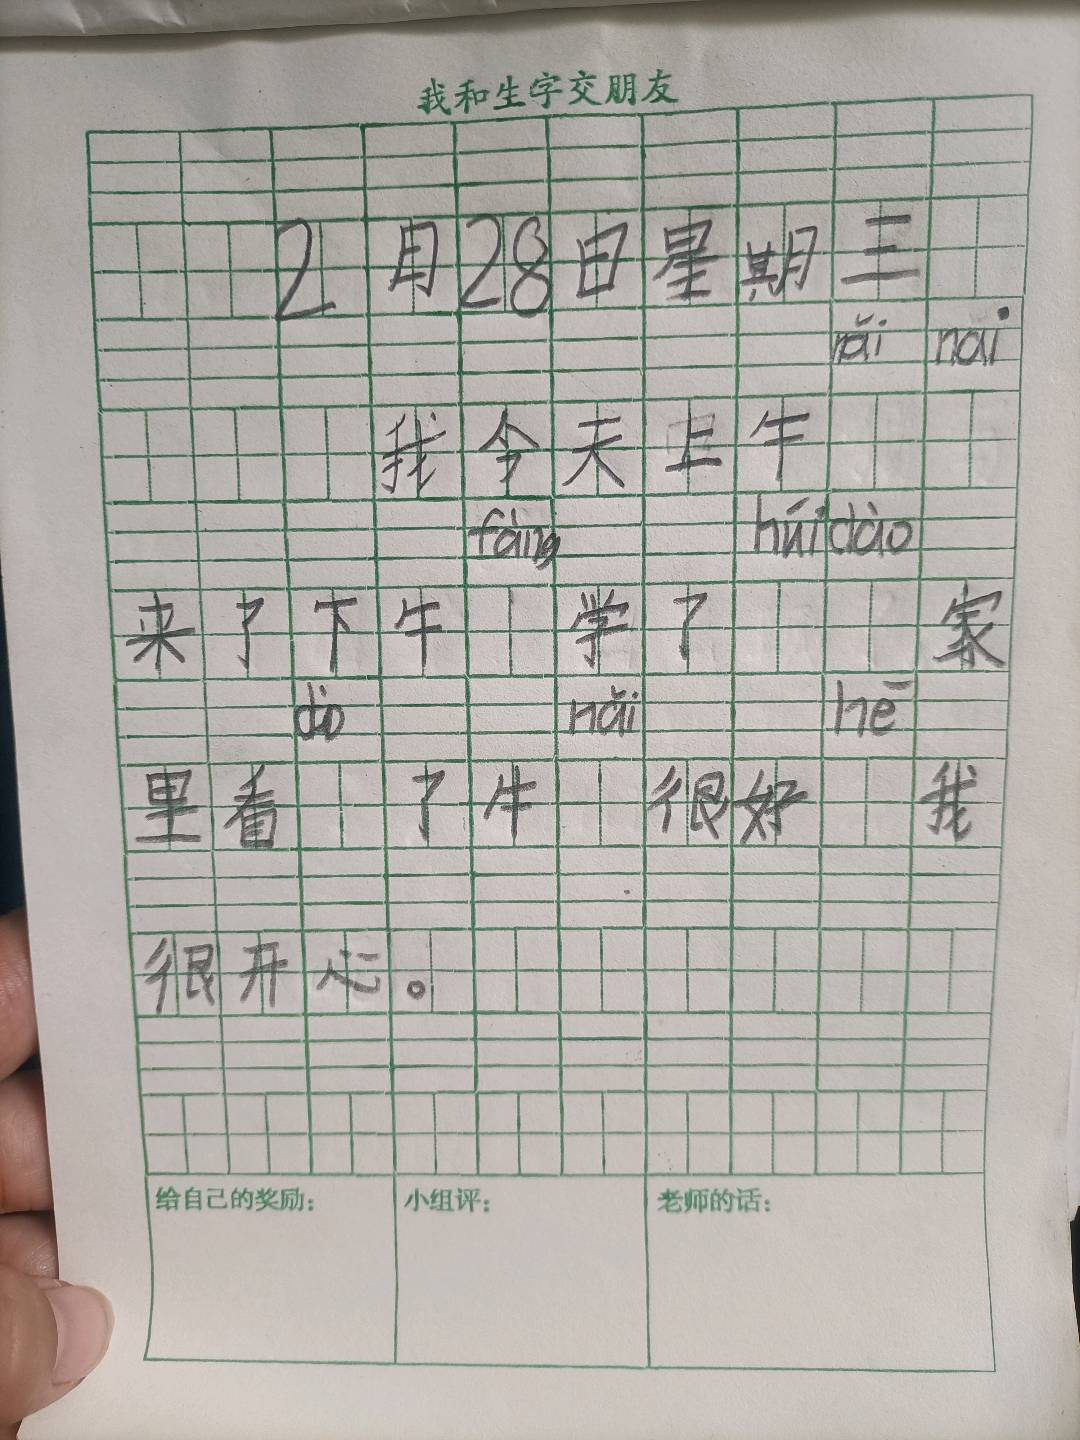 我和生字交朋友
2月28日星期三
nǎi nai
我今天上午
fàng huí dào
来了下午 学了 家
dào nǎi hē
里看 了牛 很好 我
很开心。
给自己的奖励： 小组评： 老师的话：